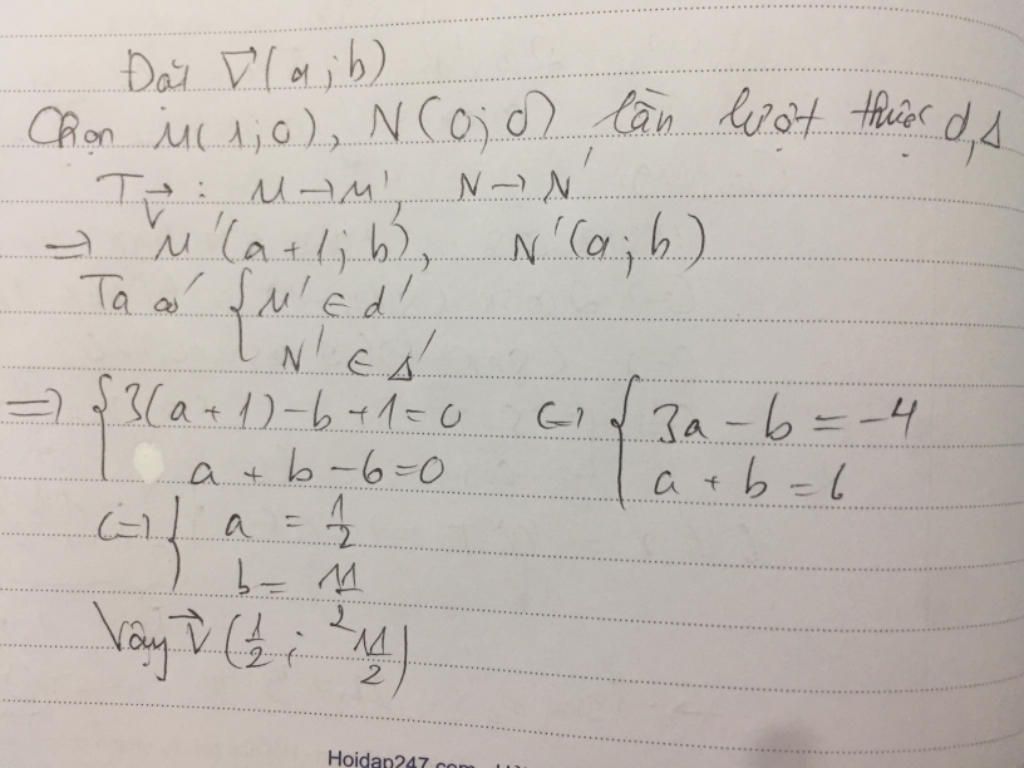 Đặt V⃗(a;b)
Chọn M(1;0), N(0;0) lần lượt thuộc d,Δ
T_V⃗ : M→M', N→N'
=> M'(a+1;b), N'(a;b)
Ta có { M' ∈ d'
N' ∈ Δ'
=> { 3(a+1)-b+1=0 (=) { 3a-b=-4
a+b-6=0 a+b=6
(=) { a = 1/2
b = 11/2
Vậy V⃗ (1/2 ; 11/2)
Hoidap247.com